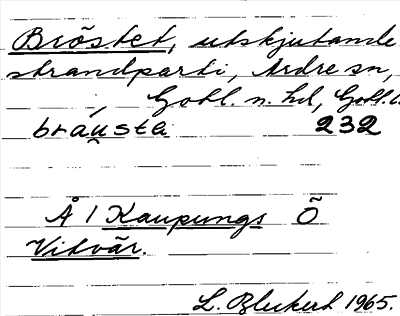 Bröstet, utskjutande
strandparti, Ardre sn,
Gotl. n. hd, Gotl. l.
bráu̯sta 232
Å / Kaupungs Õ
Vitvär.
L. Bleckert 1965.